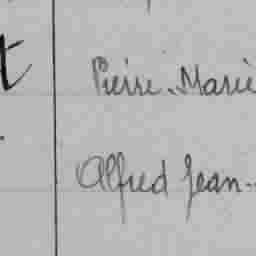 t
Pierre. Marie
Alfred Jean.